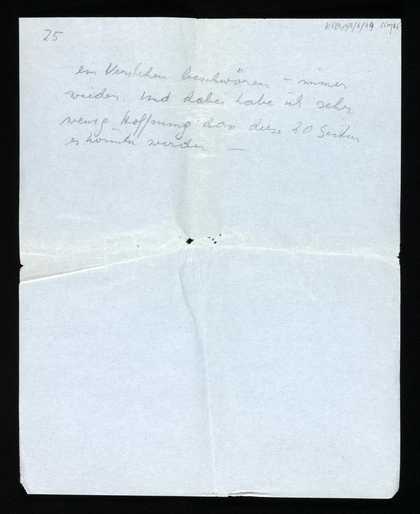 25
ein Verstehen beschwören – immer
wieder. Und dabei habe ich sehr
wenig Hoffnung: dass diese 20 Seiten
werden —